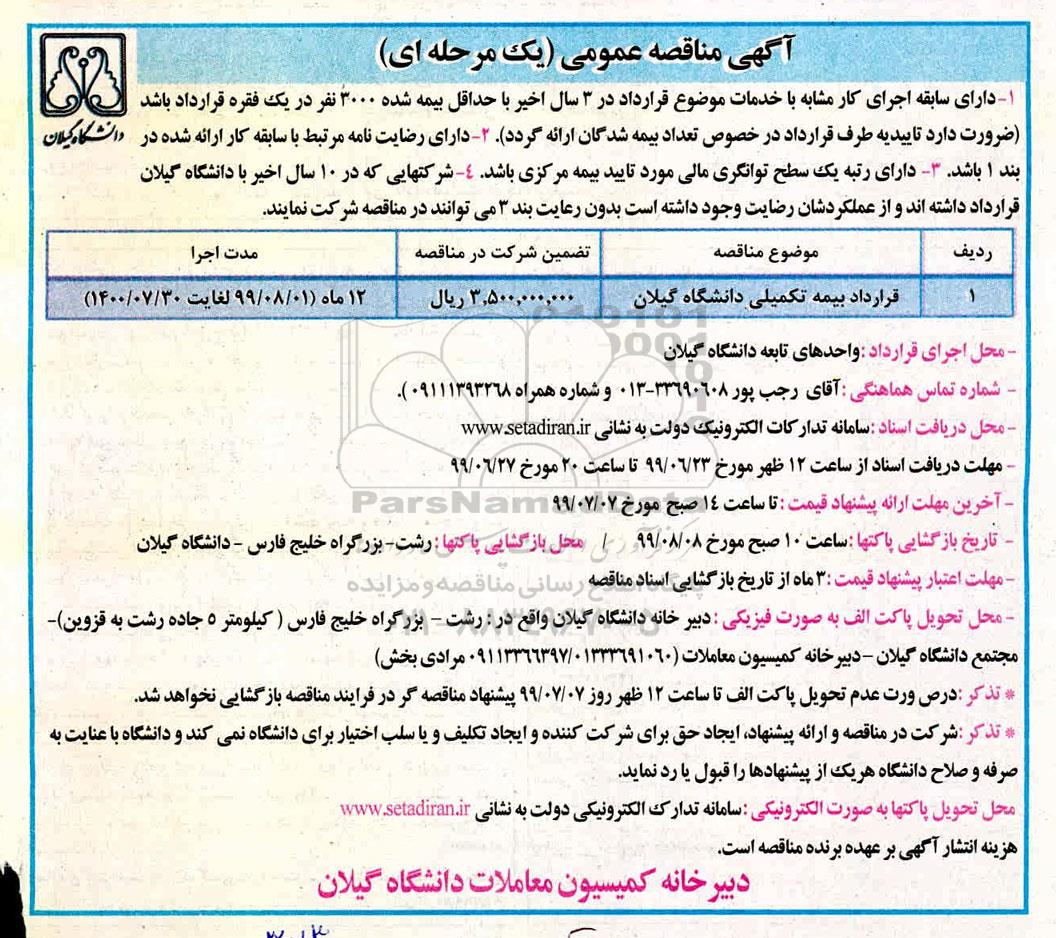 آگهی مناقصه عمومی (یک مرحله ای)
دانشگاه گیلان
۱-دارای سابقه اجرای کار مشابه با خدمات موضوع قرارداد در ۳ سال اخیر با حداقل بیمه شده ۳۰۰۰ نفر در یک فقره قرارداد باشد
(ضرورت دارد تاییدیه طرف قرارداد در خصوص تعداد بیمه شدگان ارائه گردد). ۲-دارای رضایت نامه مرتبط با سابقه کار ارائه شده در
بند ۱ باشد. ۳- دارای رتبه یک سطح توانگری مالی مورد تایید بیمه مرکزی باشد. ٤-شرکتهایی که در ۱۰ سال اخیر با دانشگاه گیلان
قرارداد داشته اند و از عملکردشان رضایت وجود داشته است بدون رعایت بند ۳ می توانند در مناقصه شرکت نمایند.
ردیف موضوع مناقصه تضمین شرکت در مناقصه مدت اجرا
۱ قرارداد بیمه تکمیلی دانشگاه گیلان ۳,۵۰۰,۰۰۰,۰۰۰ ریال ۱۲ ماه (۹۹/۰۸/۰۱ لغایت ۱۴۰۰/۰۷/۳۰)
- محل اجرای قرارداد :واحدهای تابعه دانشگاه گیلان
- شماره تماس هماهنگی :آقای رجب پور ۳۳۶۹۰۶۰۸-۰۱۳ و شماره همراه ۰۹۱۱۱۳۹۳۲۶۸).
-محل دریافت اسناد :سامانه تدارکات الکترونیک دولت به نشانی www.setadiran.ir
- مهلت دریافت اسناد از ساعت ۱۲ ظهر مورخ ۹۹/۰۶/۲۳ تا ساعت ۲۰ مورخ ۹۹/۰۶/۲۷
- آخرین مهلت ارائه پیشنهاد قیمت :تا ساعت ۱٤ صبح مورخ ۹۹/۰۷/۰۷
- تاریخ بازگشایی پاکتها :ساعت ۱۰ صبح مورخ ۹۹/۰۸/۰۸ / محل بازگشایی پاکتها :رشت- بزرگراه خلیج فارس - دانشگاه گیلان
-مهلت اعتبار پیشنهاد قیمت :۳ ماه از تاریخ بازگشایی اسناد مناقصه
- محل تحویل پاکت الف به صورت فیزیکی :دبیر خانه دانشگاه گیلان واقع در : رشت - بزرگراه خلیج فارس ( کیلومتر ۵ جاده رشت به قزوین)-
مجتمع دانشگاه گیلان -دبیرخانه کمیسیون معاملات (۰۹۱۱۳۳۶۶۳۹۷/۰۱۳۳۳۶۹۱۰۶۰ مرادی بخش)
* تذکر :درص ورت عدم تحویل پاکت الف تا ساعت ۱۲ ظهر روز ۹۹/۰۷/۰۷ پیشنهاد مناقصه گر در فرایند مناقصه بازگشایی نخواهد شد.
* تذکر :شرکت در مناقصه و ارائه پیشنهاد، ایجاد حق برای شرکت کننده و ایجاد تکلیف و یا سلب اختیار برای دانشگاه نمی کند و دانشگاه با عنایت به
صرفه و صلاح دانشگاه هریک از پیشنهادها را قبول یا رد نماید.
محل تحویل پاکتها به صورت الکترونیکی :سامانه تدارک الکترونیکی دولت به نشانی www.setadiran.ir
هزینه انتشار آگهی بر عهده برنده مناقصه است.
دبیرخانه کمیسیون معاملات دانشگاه گیلان
ParsNamadData
پایگاه اطلاع رسانی مناقصه و مزایده